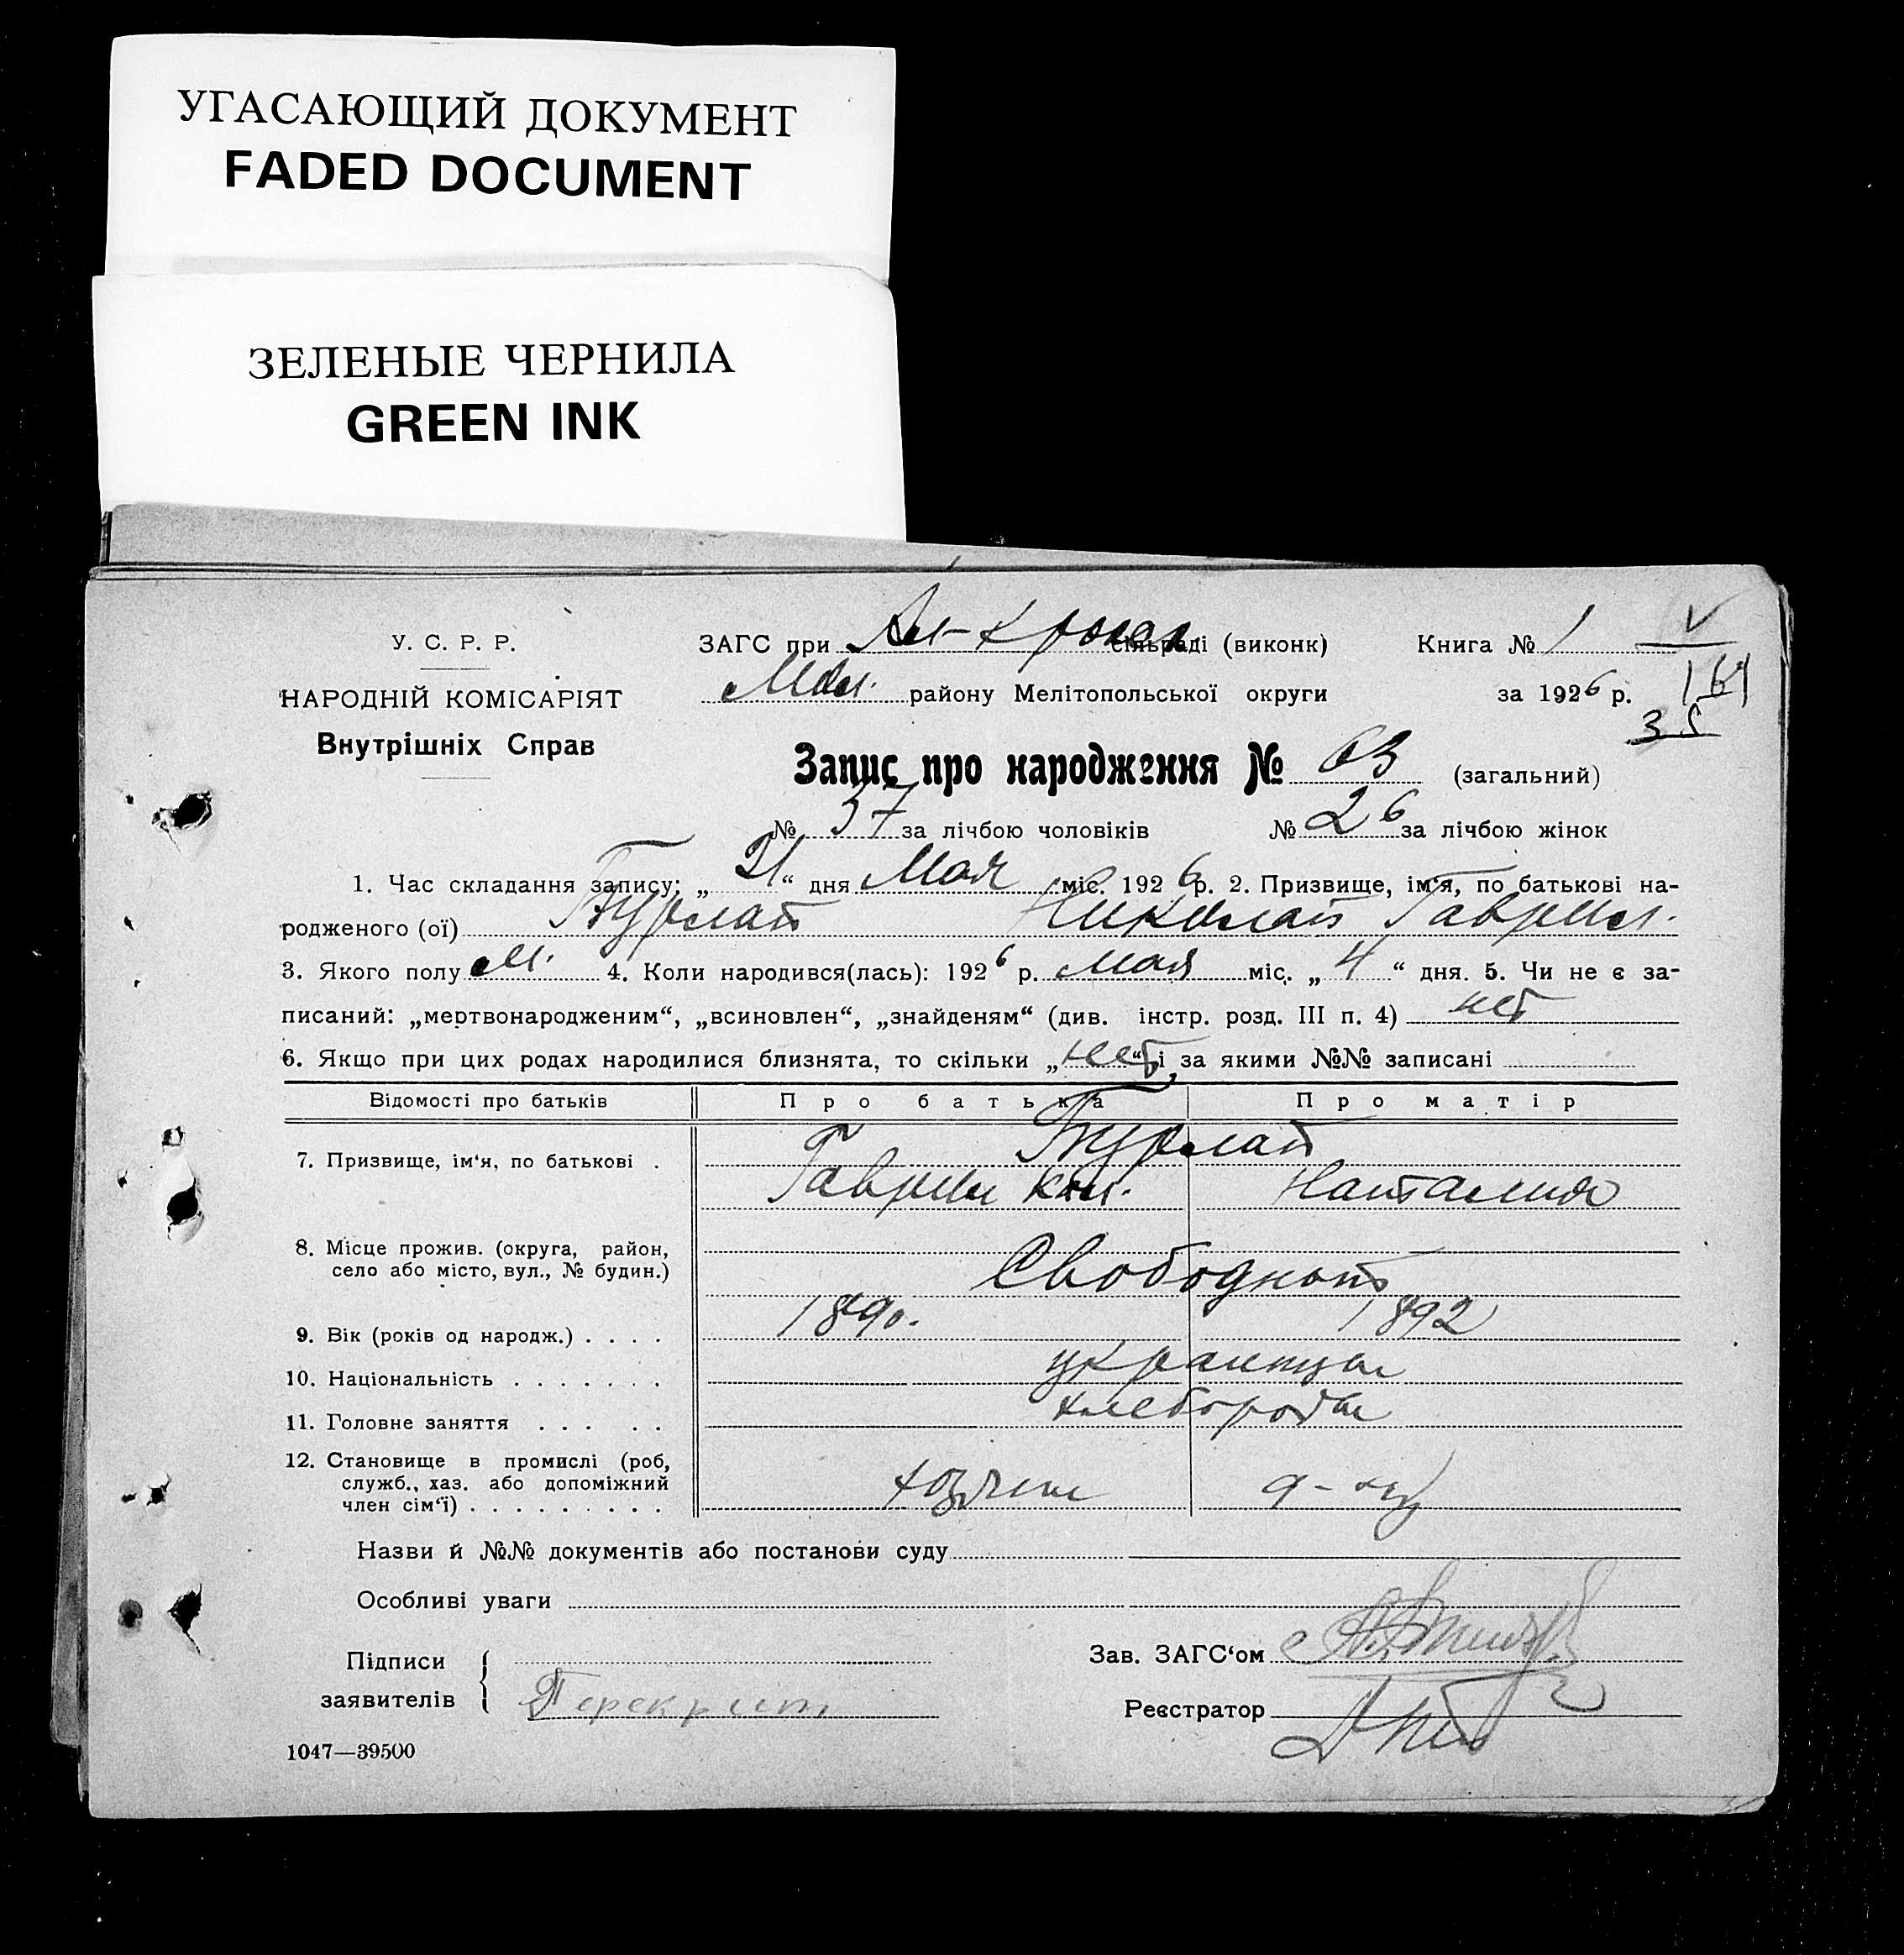 УГАСАЮЩИЙ ДОКУМЕНТ
FADED DOCUMENT
ЗЕЛЕНЫЕ ЧЕРНИЛА
GREEN INK
У. С. Р. Р.
НАРОДНІЙ КОМІСАРІЯТ
Внутрішніх Справ
ЗАГС при сільраді (виконк) Книга № 1
Мел. району Мелітопольської округи за 1926 р. 161
35
Запис про народження № 63 (загальний)
№ 37 за лічбою чоловіків № 26 за лічбою жінок
1. Час складання запису: „ 21 “ дня Мая міс. 1926 р. 2. Призвище, ім‘я, по батькові на-
родженого (ої) Бурлат Николай Гаврил.
3. Якого полу м. 4. Коли народився(лась): 1926 р. мая міс. „ 4 “ дня. 5. Чи не є за-
писаний: „мертвонародженим“, „всиновлен“, „знайденям“ (див. інстр. розд. III п. 4) нет
6. Якщо при цих родах народилися близнята, то скільки „ нет “ і за якими №№ записані
Відомості про батьків Про батька Про матір
7. Призвище, ім‘я, по батькові . Бурлат
Гаврил Наталия
8. Місце прожив. (округа, район,
село або місто, вул., № будин.) Свободная
9. Вік (років од народж.) . . . . 1890. 1892
10. Національність . . . . . . . украинцы
11. Головне заняття . . . . . хлеборобы
12. Становище в промислі (роб,
служб., хаз. або допоміжний
член сім‘ї) . . . . . . . . . хозяин
Назви й №№ документів або постанови суду
Особливі уваги
Підписи
заявителів
Зав. ЗАГС‘ом
Реєстратор
1047—39500